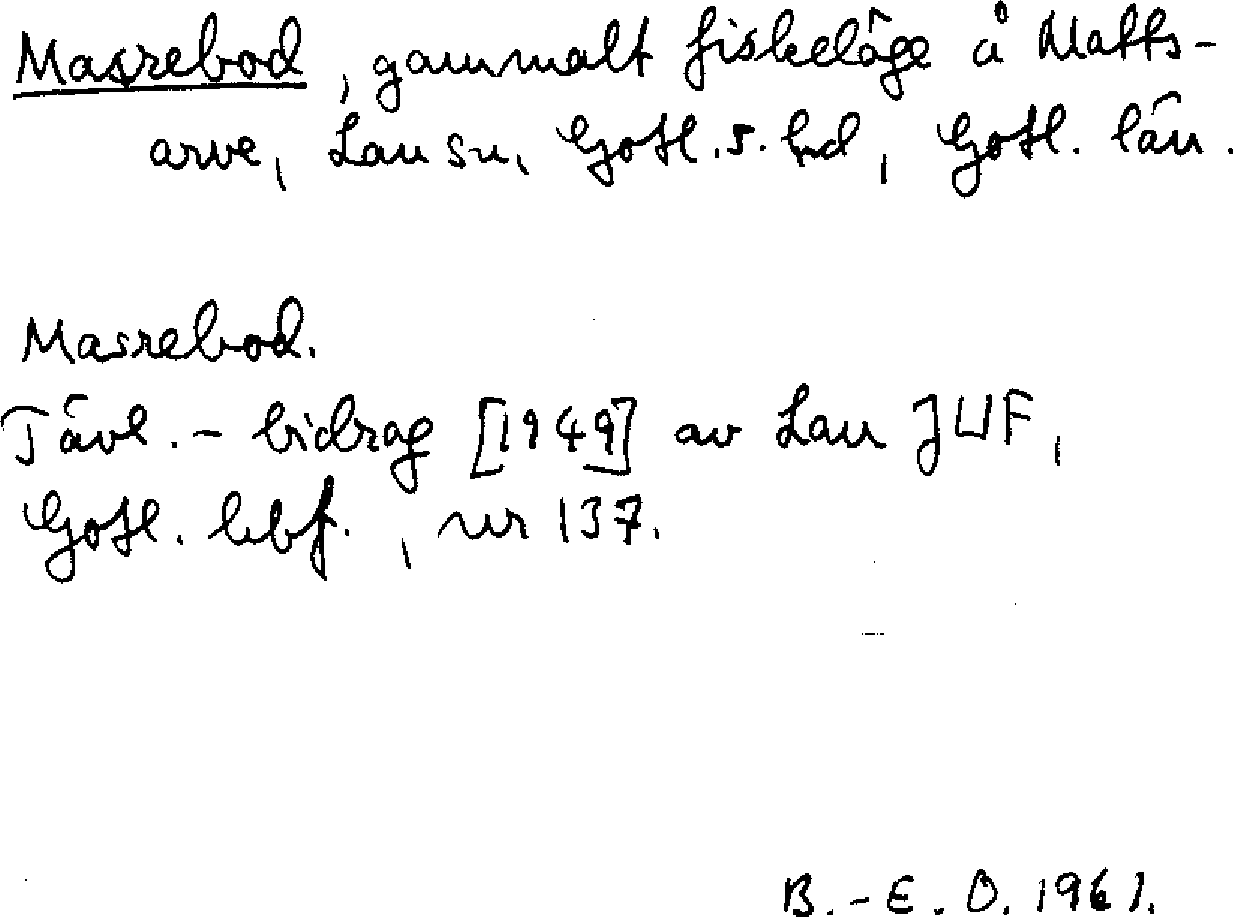 Masrebod, gammalt fiskeläge å Matts-
arve, Lau sn, Gotl. s. hd, Gotl. län.
Masrebod.
Tävl.-bidrag [1949] av Lau JUF,
Gotl. hbf., nr 137.
B.-E. O. 1961.